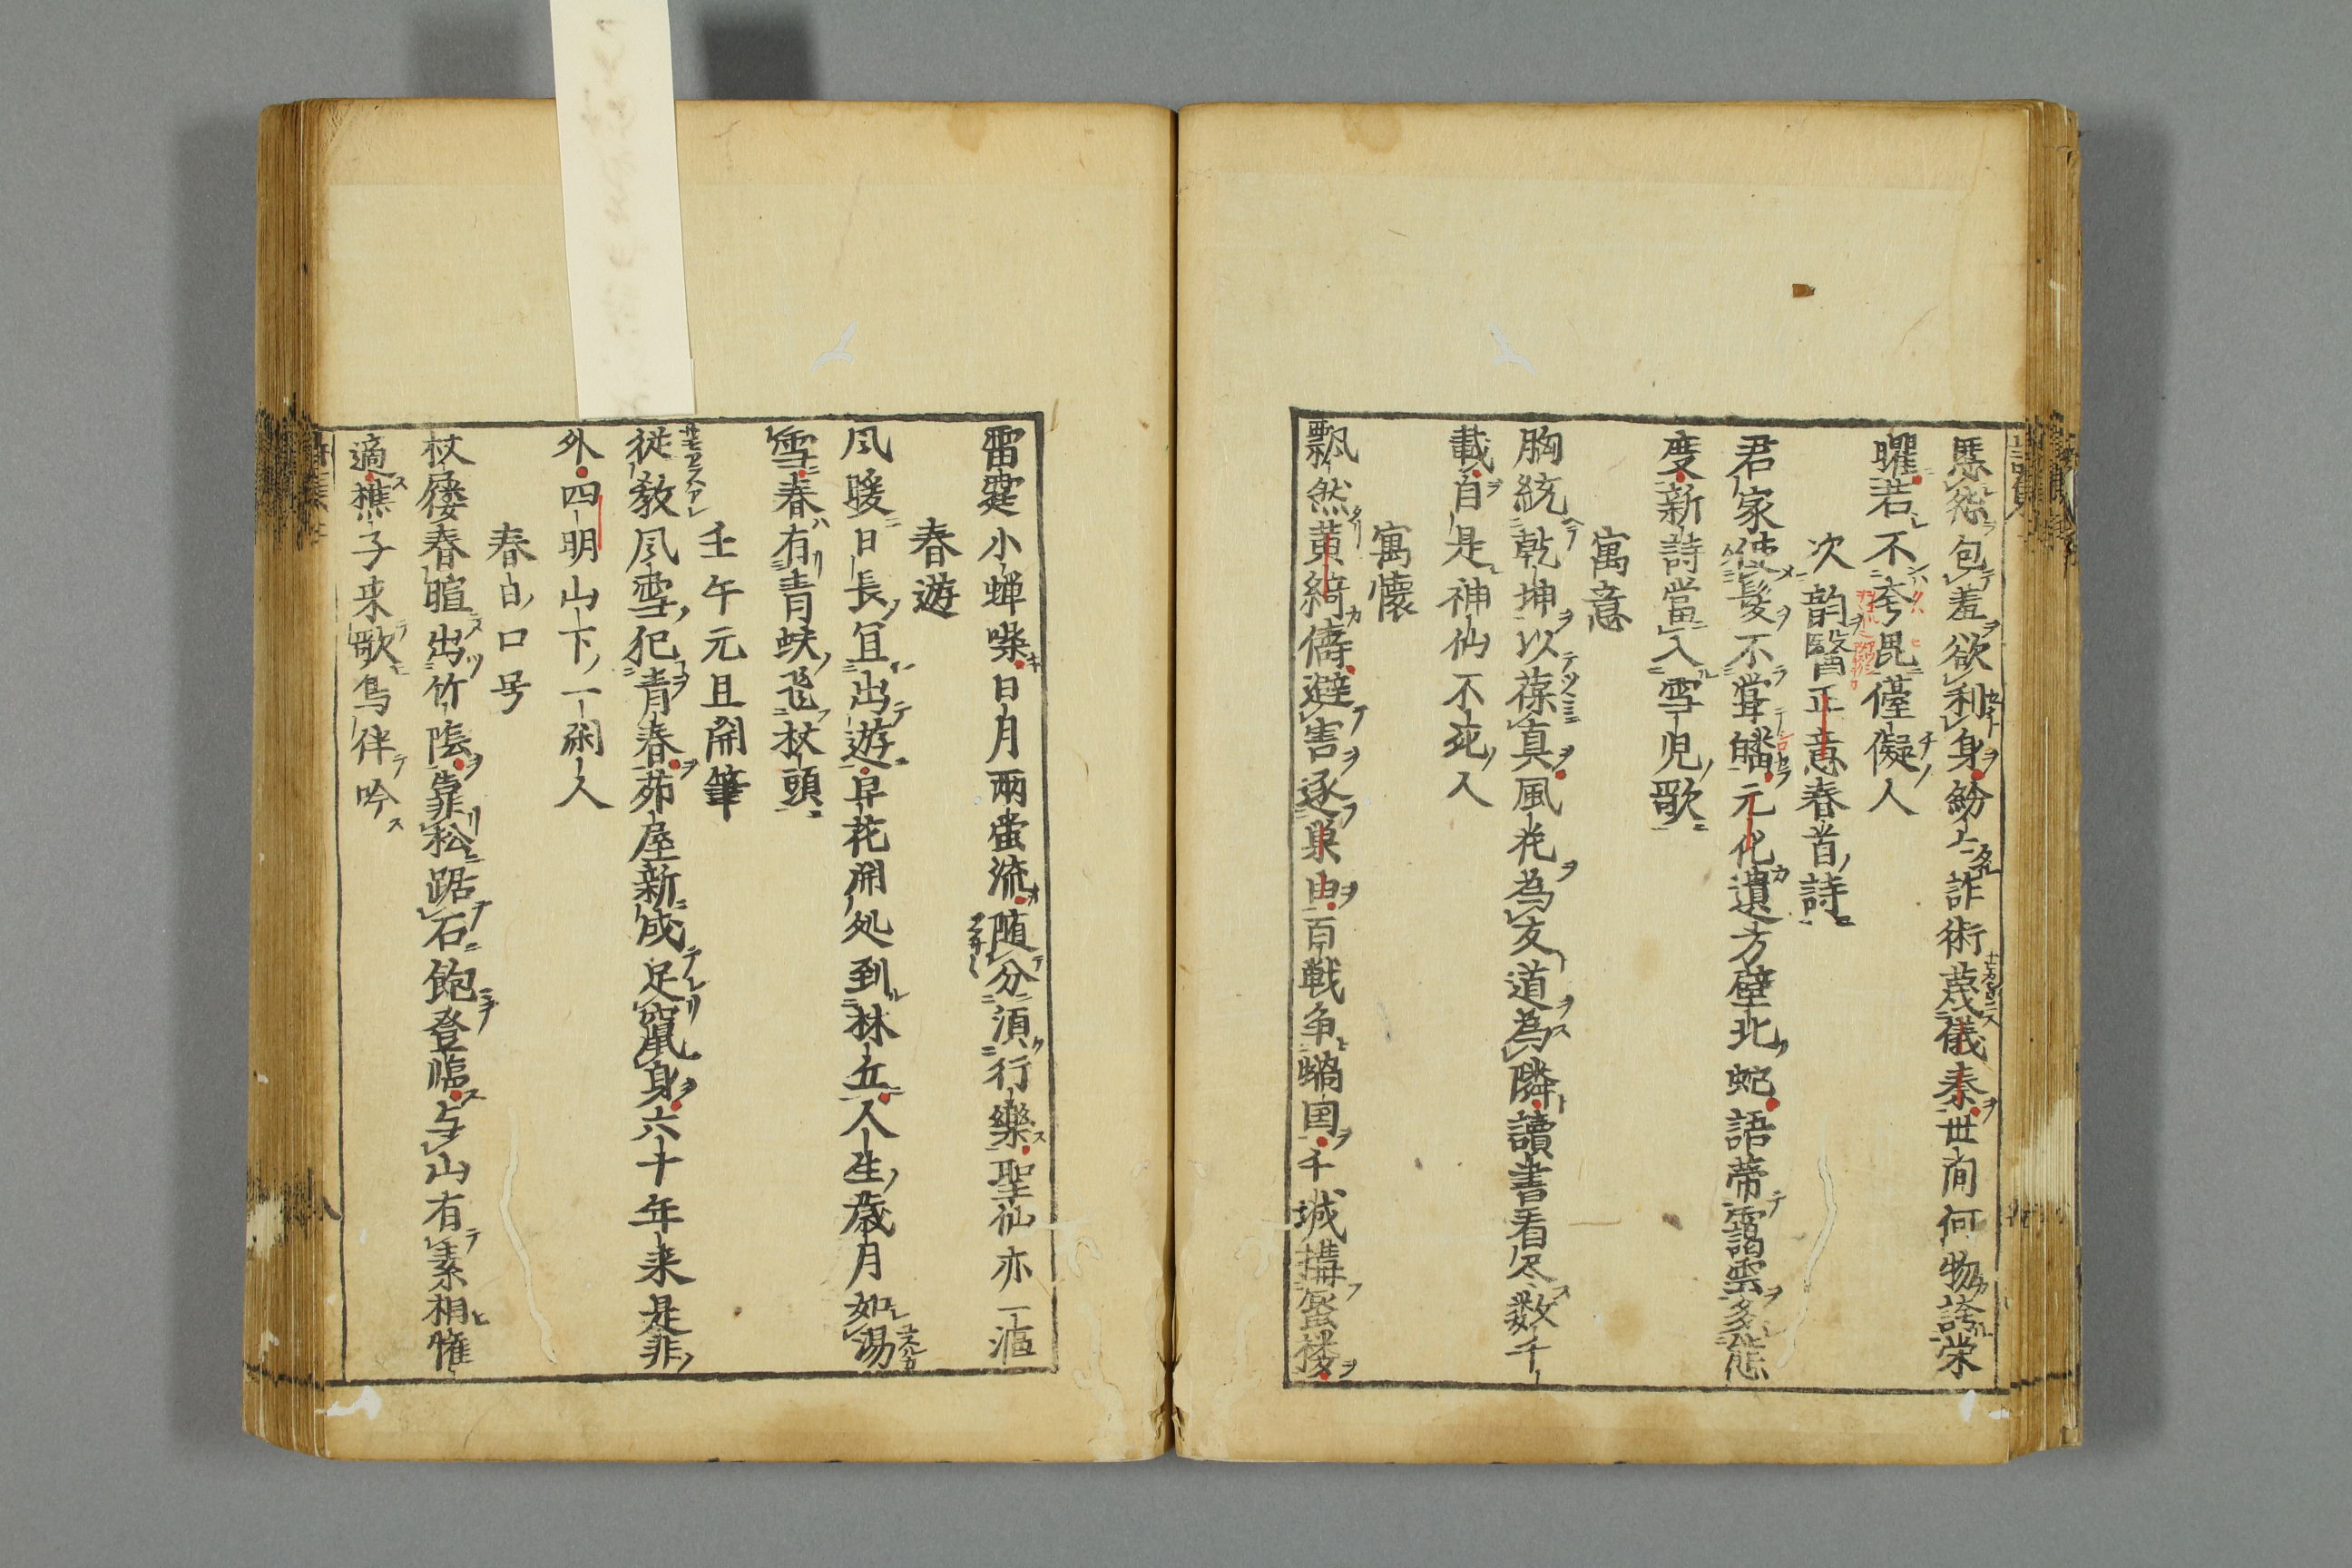 包羞欲利身紛々詐術蔑儀秦世間何物誇栄
曜若不
次韵醫正意春首詩
君家
度新詩當入雪児歌
寓意
胸統乾坤以葆真風花為友道為隣讀書看尽数千
載自是神仙不死人
寓懐
飄然黄綺儔避害逐巣由百戦争蝸国千城搆蜃楼
雷霆小蝉噪日月両蛍流随分須行樂聖仙亦一漚
春遊
風暖日長宜出遊早花開処到林丘人生歳月如湯
雪春有青蚨飛杖頭
壬午元旦開筆
従教風雪犯青春茆屋新成足竄身六十年来是非
外四明山下一閑人
春日口号
杖屨春暄出竹陰靠松踞石飽登臨与山有素相惟
適樵子来歌鳥伴吟